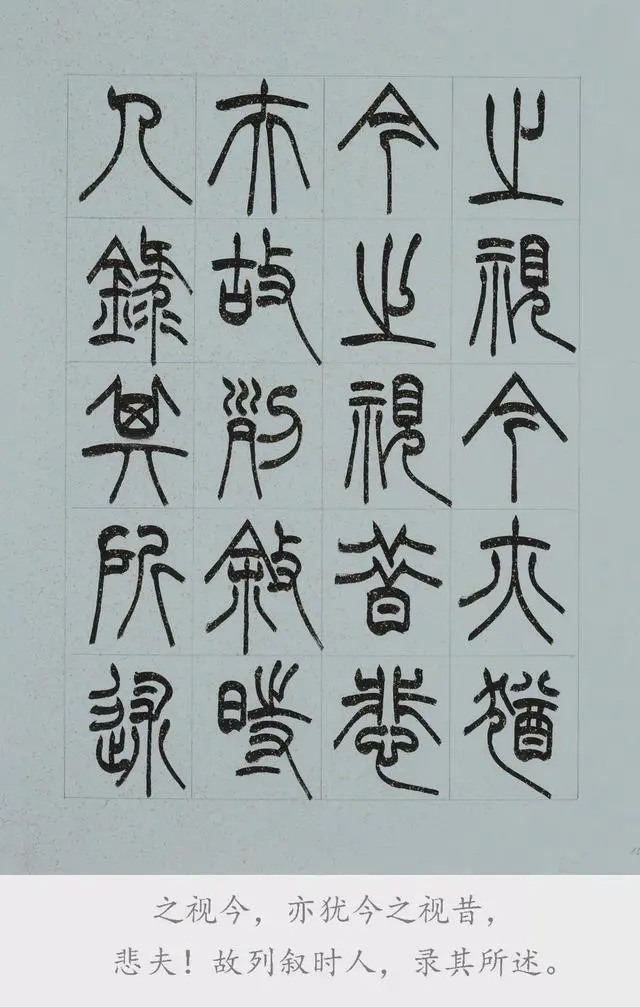 之視今亦猶
今之視昔悲
夫故列敘時
人錄其所述
之视今，亦犹今之视昔，
悲夫！故列叙时人，录其所述。